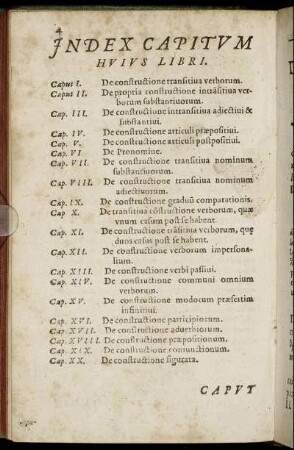 INDEX CAPITVM
HVIVS LIBRI.
Caput I. De constructione transitiua verborum.
Caput II. De propria constructione intrãsitiua ver-
borum substantiuorum.
Cap. III. De constructione intransitiua adiectiui &
substantiui.
Cap. IV. De constructione articuli præpositiui.
Cap. V. De constructione articuli postpositiui.
Cap. VI. De Pronomine.
Cap. VII. De constructione transitiua nominum
substantiuorum.
Cap. VIII. De constructione transitiua nominum
adiectiuorum.
Cap. IX. De constructione graduũ comparationis.
Cap. X. De transitiua cõstructione verborum, quæ
vnum casum post se habent.
Cap. XI. De constructione trãsitiua verborum, quę
duos casus post se habent.
Cap. XII. De constructione verborum impersona-
lium.
Cap. XIII. De constructione verbi passiui.
Cap. XIV. De constructione communi omnium
verborum.
Cap. XV. De constructione modorum præsertim
infinitiui.
Cap. XVI. De constructione participiorum.
Cap. XVII. De constructione aduerbiorum.
Cap. XVIII. De constructione præpositionum.
Cap. XIX. De constructione coniunctionum.
Cap. XX. De constructione figurata.
CAPVT